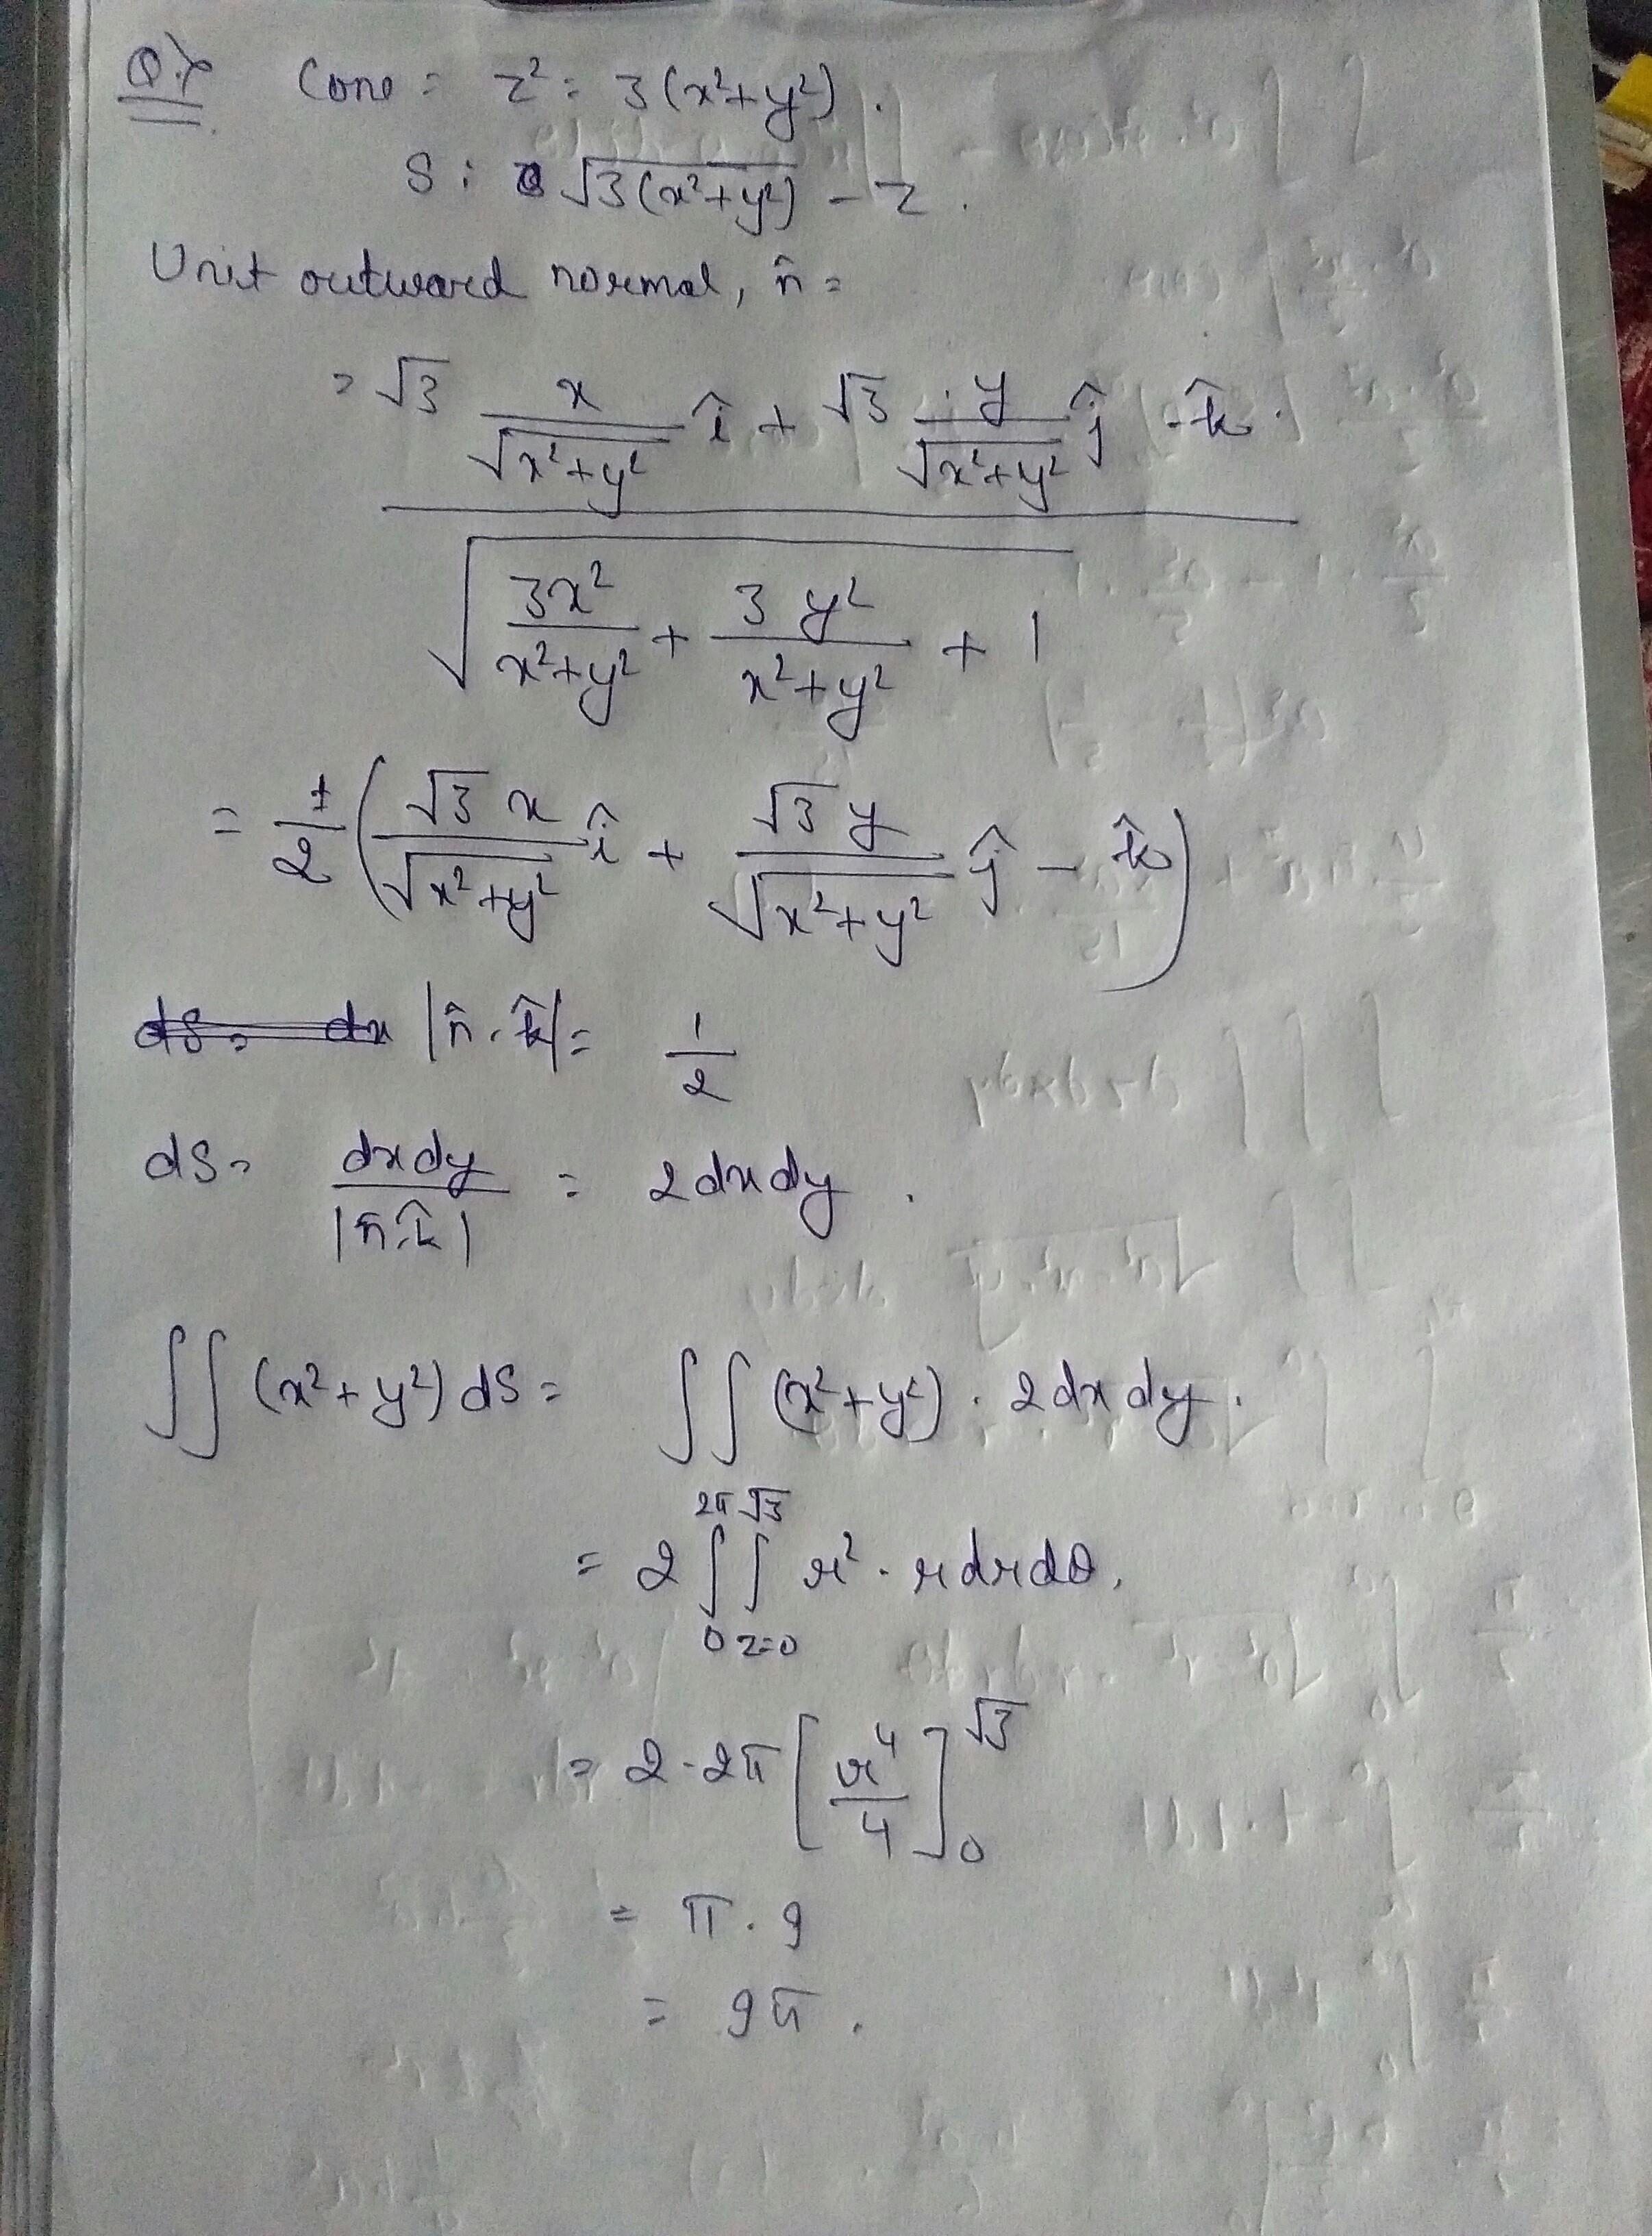 Q.7 Cone = z² = 3(x²+y²).
S : √3(x²+y²) - z.
Unit outward normal, n̂ =
= √3 x/√x²+y² î + √3 y/√x²+y² ĵ - k̂.
√ 3x²/x²+y² + 3y²/x²+y² + 1
= 1/2 ( √3 x/√x²+y² î + √3 y/√x²+y² ĵ - k̂ )
dS = dx |n̂.k̂| = 1/2
dS = dxdy/|n̂.k̂| = 2dxdy.
∫∫ (x²+y²) dS = ∫∫ (x²+y²) . 2dxdy.
= 2 ∫₀^2π ∫_z=0^√3 r² . r dr dθ.
= 2 . 2π [r⁴/4]₀^√3
= π . 9
= 9π.